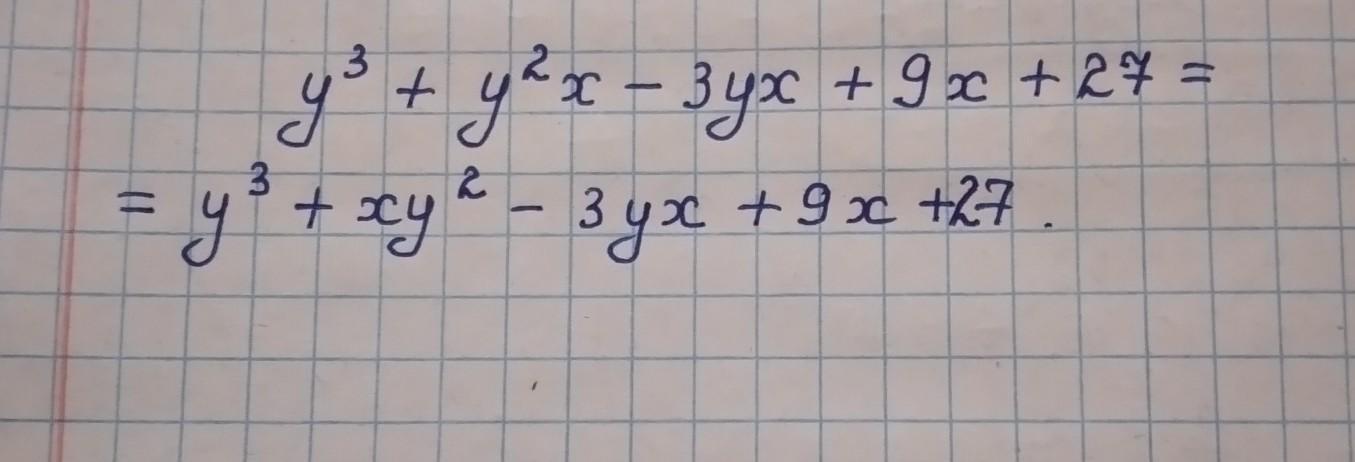 y³ + y²x - 3yx + 9x + 27 =
= y³ + xy² - 3yx + 9x + 27.